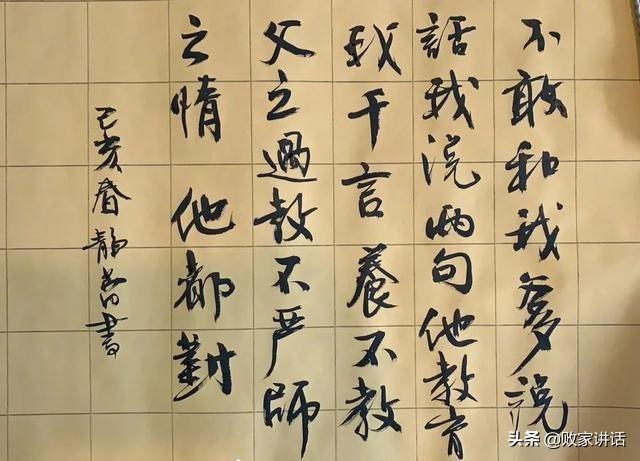 不敢和我爹说
話我说两句他教育
我千言養不教
父之過教不严師
之情他都對
己亥春静書
头条 @败家讲话